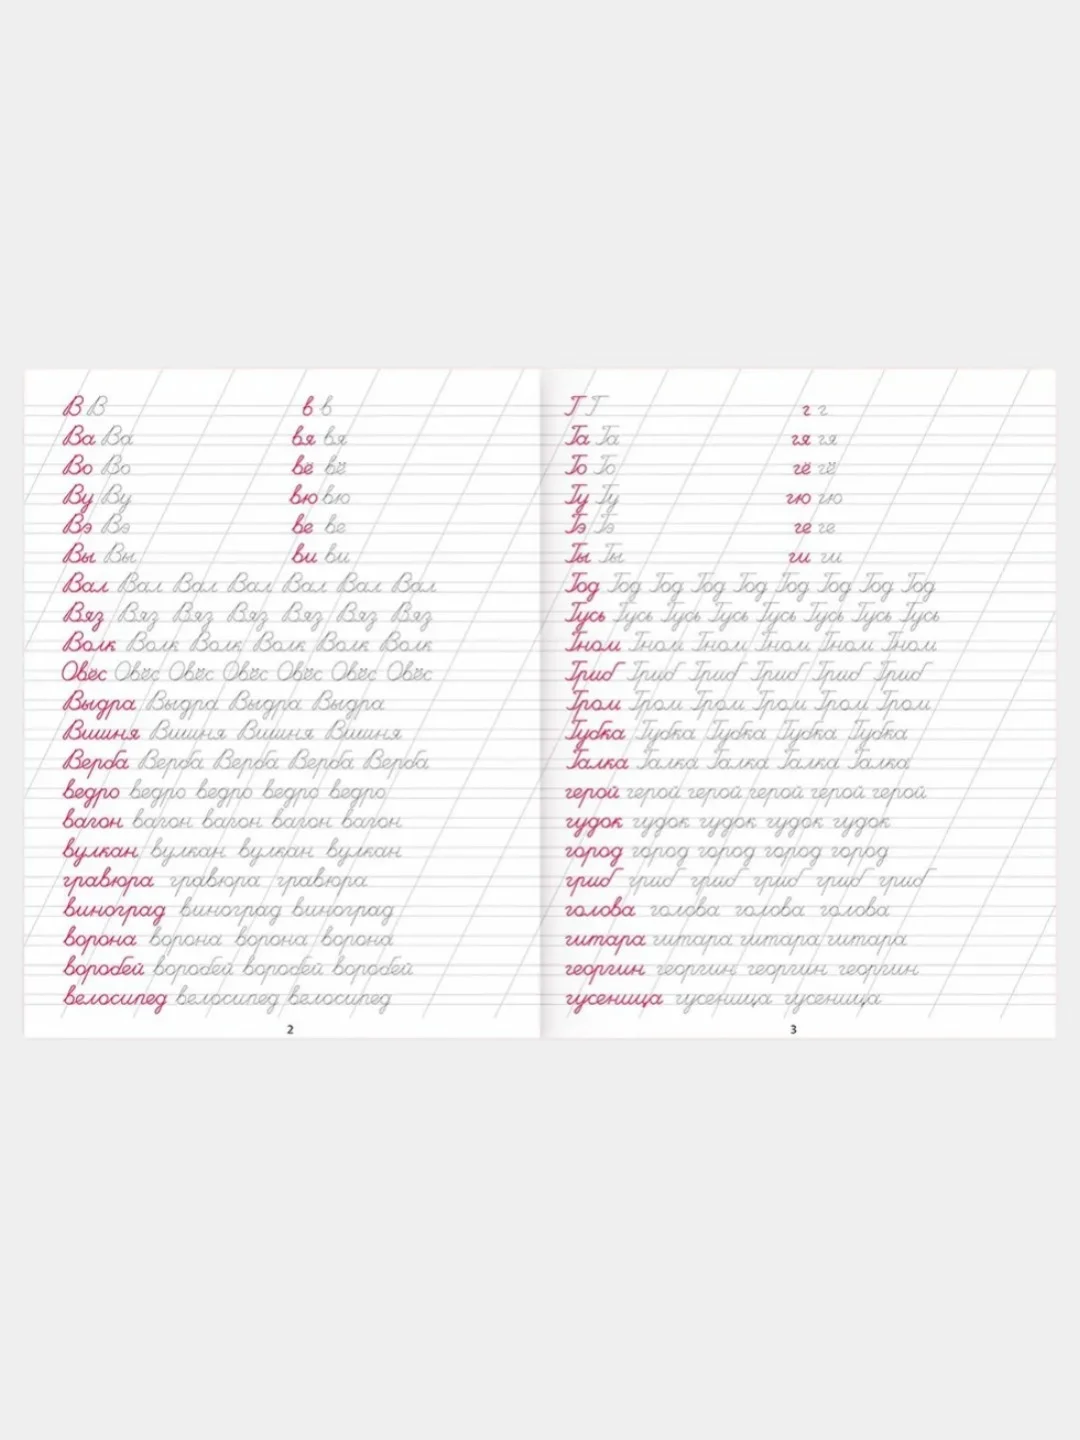 В В в в
Ва Ва вя вя
Во Во вё вё
Ву Ву вю вю
Вэ Вэ ве ве
Вы Вы ви ви
Вал Вал Вал Вал Вал Вал Вал
Вяз Вяз Вяз Вяз Вяз Вяз Вяз
Волк Волк Волк Волк Волк Волк
Овёс Овёс Овёс Овёс Овёс Овёс Овёс
Выдра Выдра Выдра Выдра
Вишня Вишня Вишня Вишня
Верба Верба Верба Верба Верба
ведро ведро ведро ведро ведро
вагон вагон вагон вагон вагон
вулкан вулкан вулкан вулкан
гравюра гравюра гравюра
виноград виноград виноград
ворона ворона ворона ворона
воробей воробей воробей воробей
велосипед велосипед велосипед
2
Г Г г г
Га Га гя гя
Го Го гё гё
Гу Гу гю гю
Гэ Гэ ге ге
Гы Гы ги ги
Год Год Год Год Год Год Год Год Год
Гусь Гусь Гусь Гусь Гусь Гусь Гусь Гусь
Гном Гном Гном Гном Гном Гном
Гриб Гриб Гриб Гриб Гриб Гриб
Гром Гром Гром Гром Гром Гром
Губка Губка Губка Губка Губка
Галка Галка Галка Галка Галка
герой герой герой герой герой герой
гудок гудок гудок гудок гудок
город город город город город
гриб гриб гриб гриб гриб гриб
голова голова голова голова
гитара гитара гитара гитара
георгин георгин георгин георгин
гусеница гусеница гусеница
3